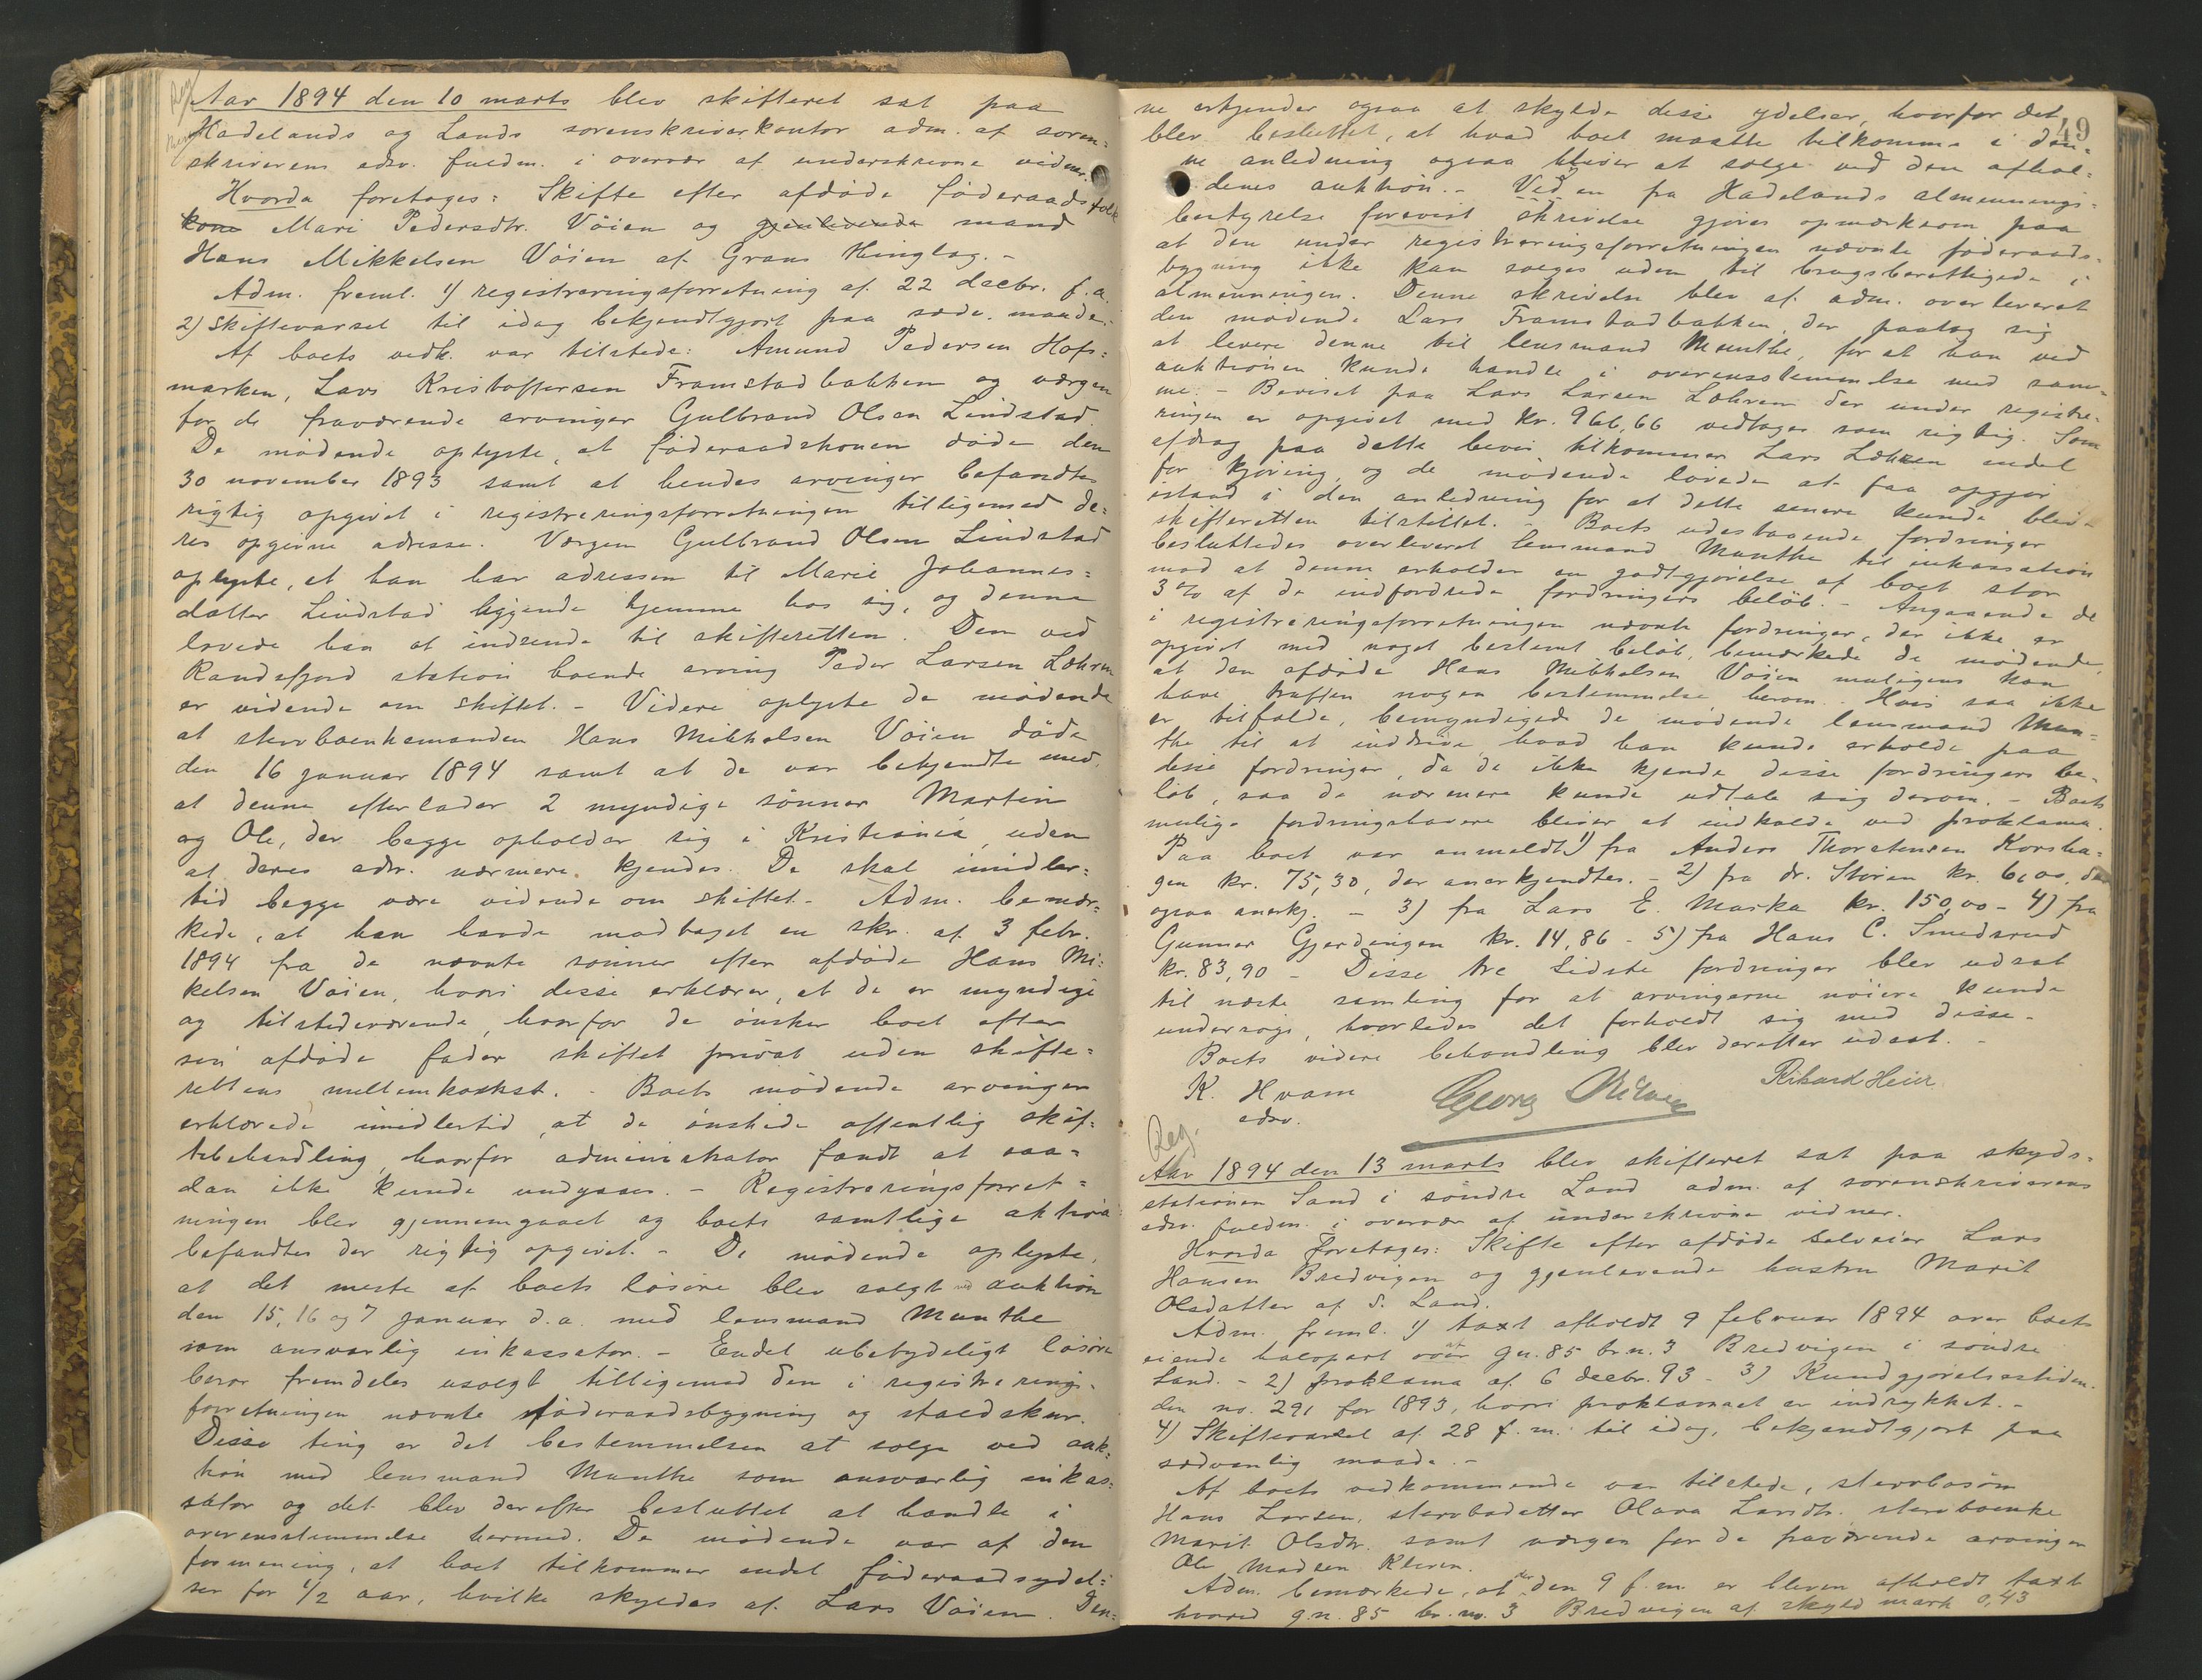 Reg.
Aar 1894 den 10 marts blev skifteret sat paa
Hadelands og Lands sorenskriverkontor adm. af soren-
skriverens edsv. fuldm. i overvær af underskrevne vidner.
Hvorda foretoges: Skifte efter afdøde føderaadsfolk
kone Mari Pedersdtr. Vøien og gjenlevende mand
Hans Mikkelsen Vøien af Grans thinglag. -
Adm. freml. 1) registreringsforretning af 22 decbr. f. a.
2) skiftevarsel til idag bekjendtgjort paa sædv. maade. -
Af boets vedk. var tilstede: Amund Pedersen Hofs-
marken, Lars Kristoffersen Framstadbakken og værgen
for de fraværende arvinger Gulbrand Olsen Lindstad.
De mødende oplyste, at føderaadskonen døde den
30 november 1893 samt at hendes arvinger befandtes
rigtig opgivet i registreringsforretningen tilligemed de-
res opgivne adresse. Værgen Gulbrand Olsen Lindstad
oplyste, at han har adressen til Marie Johannes-
datter Lindstad liggende hjemme hos sig, og denne
lovede han at indsende til skifteretten. Den ved
Randsfjord station boende arving Peder Larsen Løhren
er vidende om skiftet. - Videre oplyste de mødende
at stervboenkemanden Hans Mikkelsen Vøien døde
den 16 januar 1894 samt at de var bekjendte med,
at denne efterlader 2 myndige sønner Martin
og Ole, der begge opholder sig i Kristiania, uden
at deres adr. nærmere kjendes. De skal imidler-
tid begge være vidende om skiftet. - Adm. bemær-
kede, at han havde modtaget en skr. af 3 febr.
1894 fra de nævnte sønner efter afdøde Hans Mi-
kelsen Vøien, hvori disse erklærer, at de er myndige
og tilstedeværende, hvorfor de ønsker boet efter
sin afdøde fader skiftet privat uden skifte-
rettens mellemkomst. - Boets mødende arvinger
erklærede imidlertid, at de ønskede offentlig skif-
tebehandling, hvorfor administrator fandt at saa-
dan ikke kunde undgaaes. - Registreringsforret-
ningen blev gjennemgaaet og boets samtlige aktiva
befandtes der rigtig opgivet. - De mødende oplyste,
at det meste af boets løsøre blev solgt ved auktion
den 15, 16 og 7 januar d. a. med lensmand Munthe
som ansvarlig inkassator. - Endel ubetydeligt løsøre
beror fremdeles usolgt tilligemed den i registrerings-
forretningen nævnte føderaadsbygning og staldskur.
Disse ting er det bestemmelsen at sælge ved auk-
tion med lensmand Munthe som ansvarlig inkas-
sator og det blev derefter besluttet at handle i
overensstemmelse hermed. De mødende var af den
formening, at boet tilkommer endel føderaadsydel-
ser for 1/2 aar, hvilke skyldes af Lars Vøien. Den-
49
ne erkjender ogsaa at skylde disse ydelser, hvorfor det
blev besluttet, at hvad boet maatte tilkomme i den-
ne anledning ogsaa bliver at sælge ved den afhol-
denes auktion. - Ved en fra Hadelands almennings-
bestyrelse forevist skrivelse gjøres opmærksom paa
at den under registreringsforretningen nævnte føderaads-
bygning ikke kan sælges uden til brugsberettigede i
almenningen. Denne skrivelse blev af adm. overleveret
den mødende Lars Framstadbakken, der paatog sig
at levere denne til lensmand Munthe, for at han ved
auktionen kunde handle i overensstemmelse med sam-
me. - Beviset paa Lars Larsen Løhren der under registre-
ringen er opgivet med kr. 966,66 vedtoges som rigtig. Som
afdrag paa dette bevis tilkommer Lars Løhren endel
for kjøring, og de mødende lovede at faa opgjør
istand i den anledning for at dette senere kunde blive
skifteretten tilstillet. - Boets udestaaende fordringer
besluttedes overleveret lensmand Munthe til inkassation
mod at denne erholder en godtgjørelse af boet stor
3 % af de indfordrede fordringers beløb. - Angaaende de
i registreringsforretningen nævnte fordringer, der ikke er
opgivet med noget bestemt beløb, bemærkede de mødende,
at den afdøde Hans Mikkelsen Vøien muligens kan
have truffen nogen bestemmelse herom. Hvis saa ikke
er tilfælde, bemyndigede de mødende lensmand Mun-
the til at inddrive, hvad han kunde erholde paa
disse fordringer, da de ikke kjende disse fordringers be-
løb, saa de nærmere kunde udtale sig derom. - Boets
mulige fordringshavere bliver at indkalde ved proklama.
Paa boet var anmeldt 1) fra Anders Thorstensen Korsha-
gen kr. 75,30, der anerkjendtes. - 2) fra dr. Støren kr. 6,00, der
ogsaa anerkj. - 3) fra Lars E. Marka kr. 150,00 - 4) fra
Gunnar Gjerdingen kr. 14,86 - 5) fra Hans C. Smedsrud
kr. 83,90 - Disse tre sidste fordringer blev udsat
til næste samling for at arvingerne nøiere kunde
undersøge, hvorledes det forholdt sig med disse. -
Boets videre behandling blev derefter udsat. -
K. Hvam
edsv.
Georg
Rikard Heier
Reg.
Aar 1894 den 13 marts blev skifteret sat paa skyds-
stationen Sand i søndre Land adm. af sorenskriverens
edsv. fuldm. i overvær af underskrevne vidner.
Hvorda foretoges: Skifte efter afdøde selveier Lars
Hansen Bredvigen og gjenlevende hustru Marit
Olsdatter af S. Land.
Adm. freml. 1) taxt afholdt 9 februar 1894 over boets
eiende halvpart af gn. 85 br.n. 3 Bredvigen i søndre
Land. - 2) proklama af 6 decbr. 93 - 3) Kundgjørelsestiden-
den no. 291 for 1893, hvori proklamaet er indrykket. -
4) Skiftevarsel af 28 f. m. til idag, bekjendtgjort paa
sædvanlig maade. -
Af boets vedkommende var tilstede, stervbosøn
Hans Larsen, stervbodatter Olava Larsdtr. stervboenke
Marit Olsdtr. samt værgen for de fraværende arvinger
Ole Madsen
Adm. bemærkede, at der den 9 f. m. er bleven afholdt taxt
hvorved g.n. 85 br. no. 3 Bredvigen af skyld mark 0,43